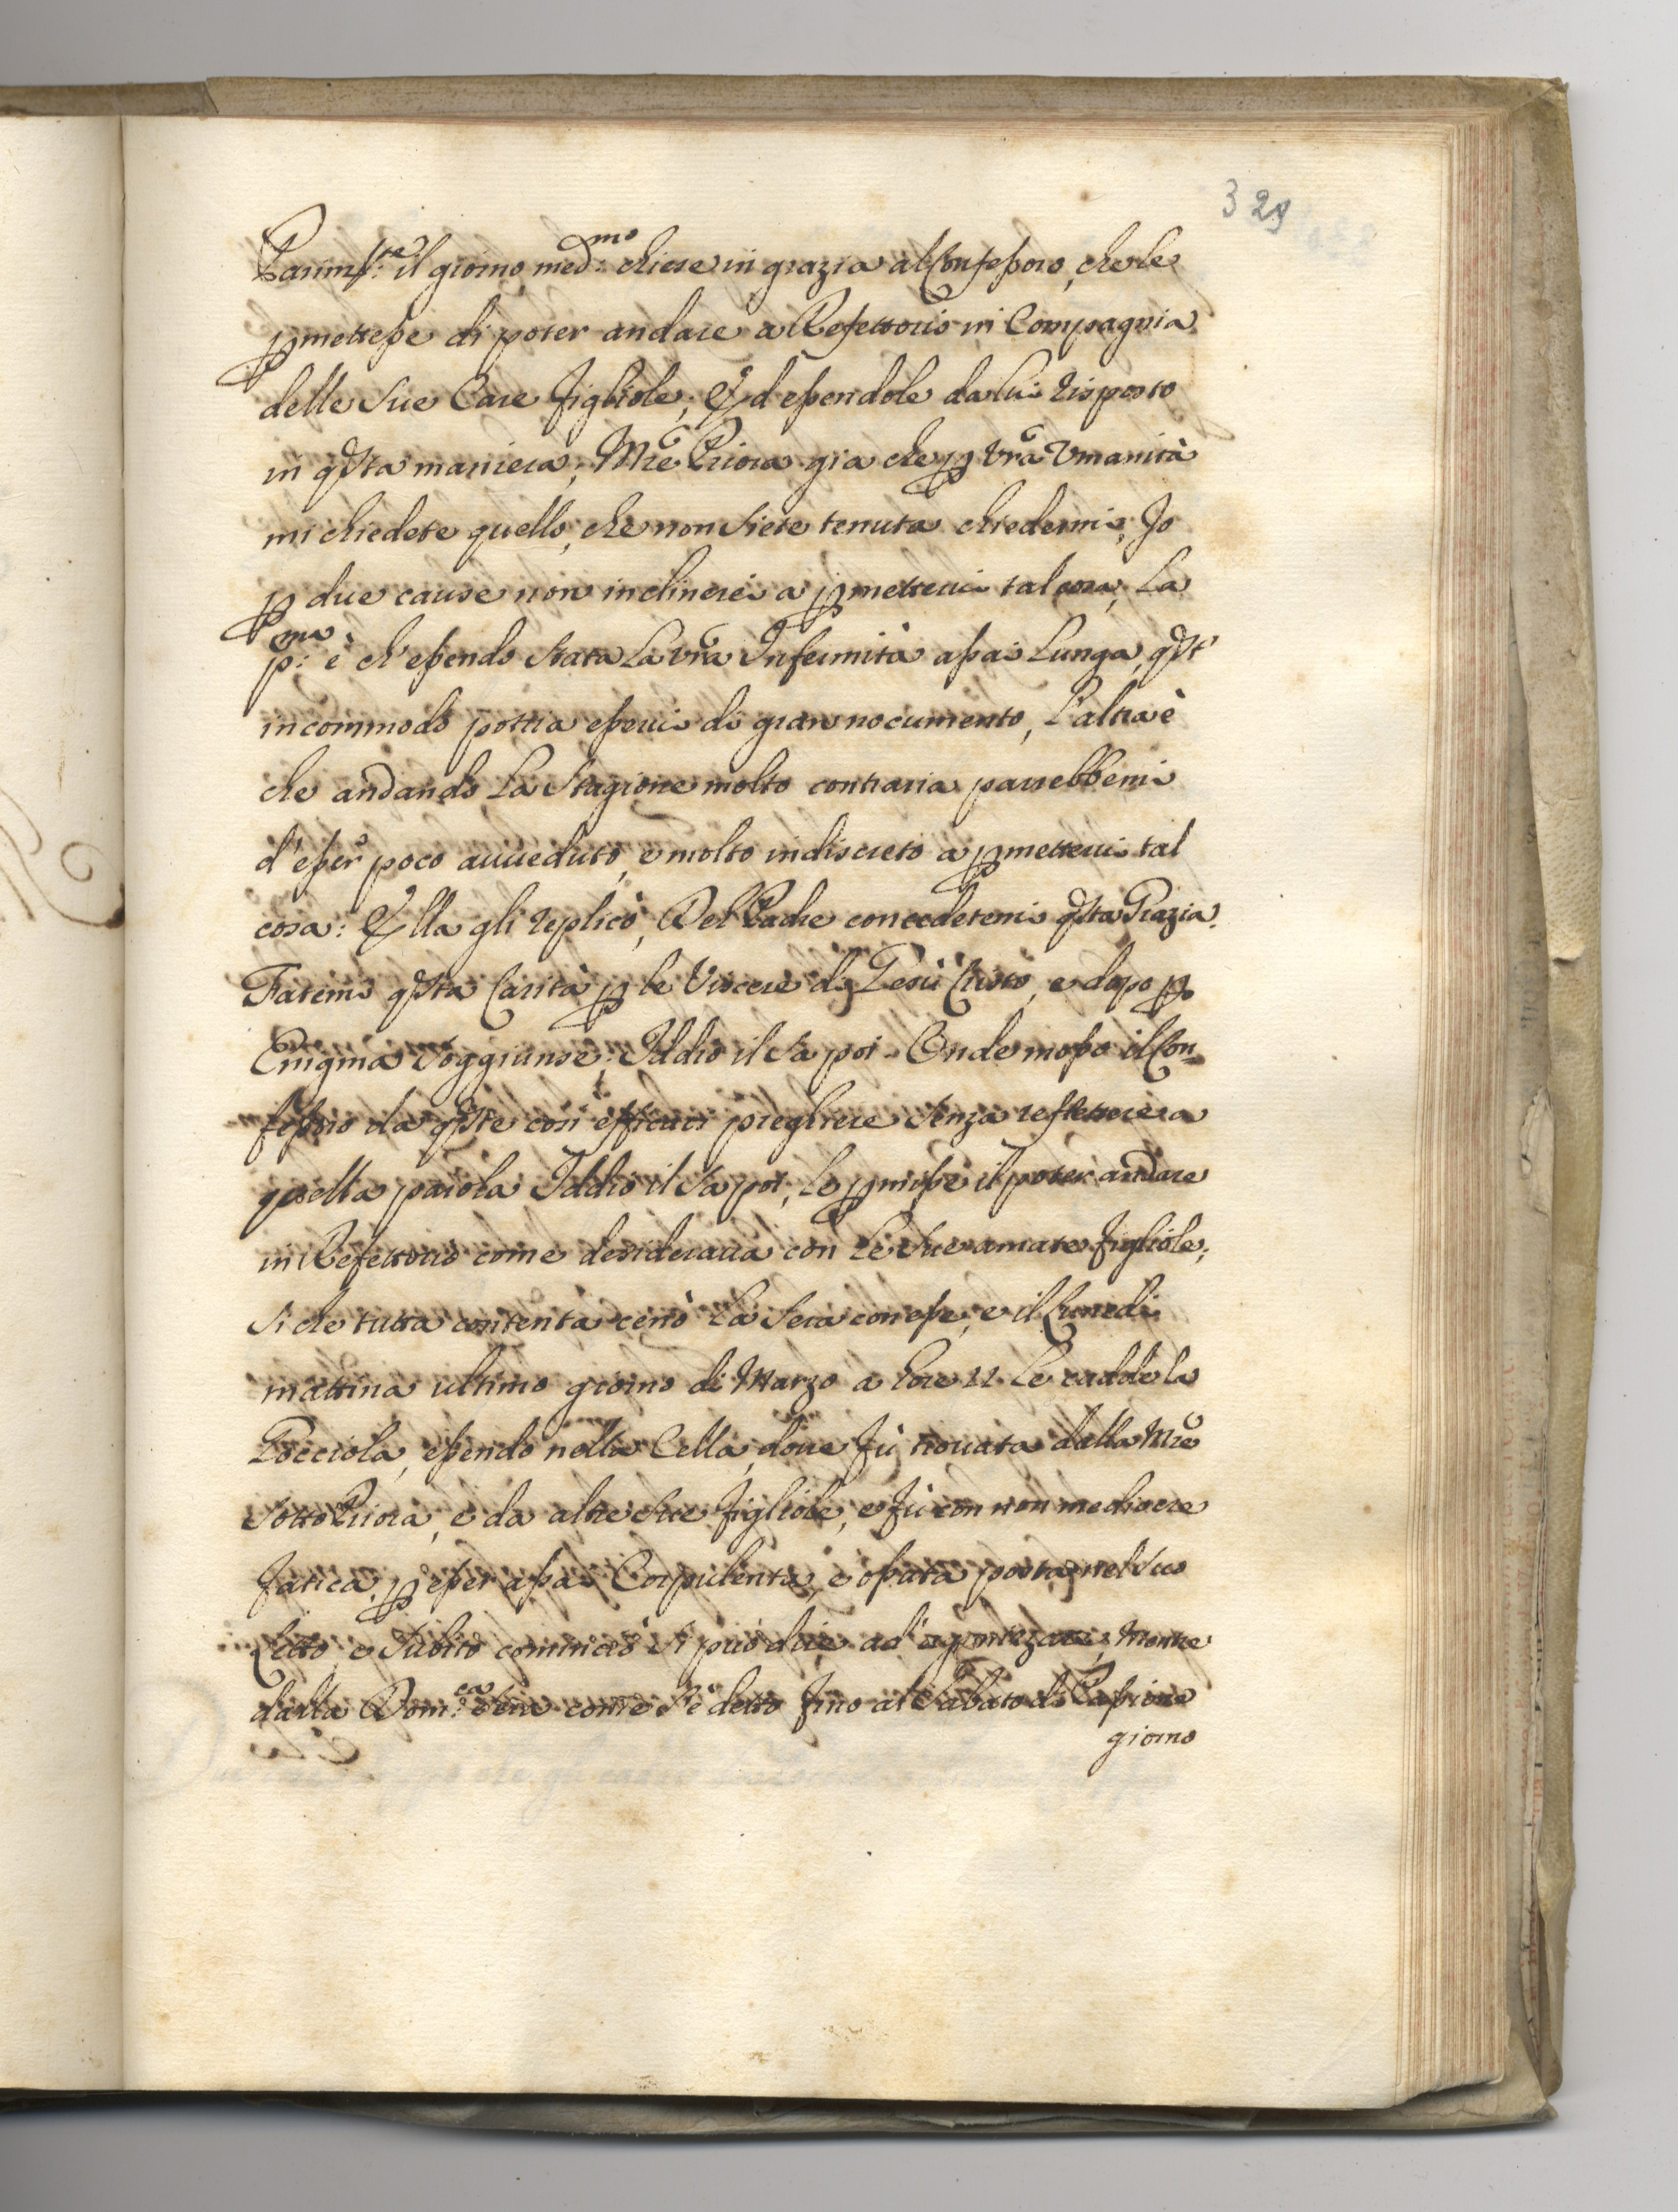 329
Parimte: il giorno medmo: chiese in grazia al Confessoro, che le
permettesse di poter andare a Refettorio in Compagnia
delle Sue Care figliole; Ed essendole da lui risposto
in qsta maniera; Mre Priora gia che per vra Vmanità
mi chiedete quello, che non siete tenuta chiedermi, Io
per due cause non inclinerei a permetterui tal cosa; La
pma: è ch'essendo stata La vra Infermità assai Lunga, qst'
incommodo potria esserui di gran nocumento, L'altra è
che andando La Stagione molto contraria parrebbemi
d'esser poco auueduto, e molto indiscreto a permetterui tal
cosa: Ella gli replicò, Deh Padre concedetemi qsta Grazia.
Fatemi qsta Carità per le Viscere di Gesù Cristo, e dopo per
Enigma soggiunse; Iddio il Sa poi. Onde mosso il Con
fessoro da qste così efficaci preghiere senza reflettere a
quella parola Iddio il Sa poi, le permisse il poter andare
in Refettorio come desideraua con Le Sue amate figliole;
Si che tutta contenta cenò La Sera con esse, e il Lunedi
mattina ultimo giorno di Marzo a hore 11 Le cadde la
Gocciola, essendo nella Cella, doue fù trouata dalla Mre
Sotto Priora, e da altre Sue figliole, e fù con non mediocre
fatica, per esser assai Corpulenta, e ossuta posta nel Suo
Letto, e Subito cominciò si può dire ad agonizare, mentre
dalla Domca: Sera come s'è detto fino al Sabato di Passione
giorno